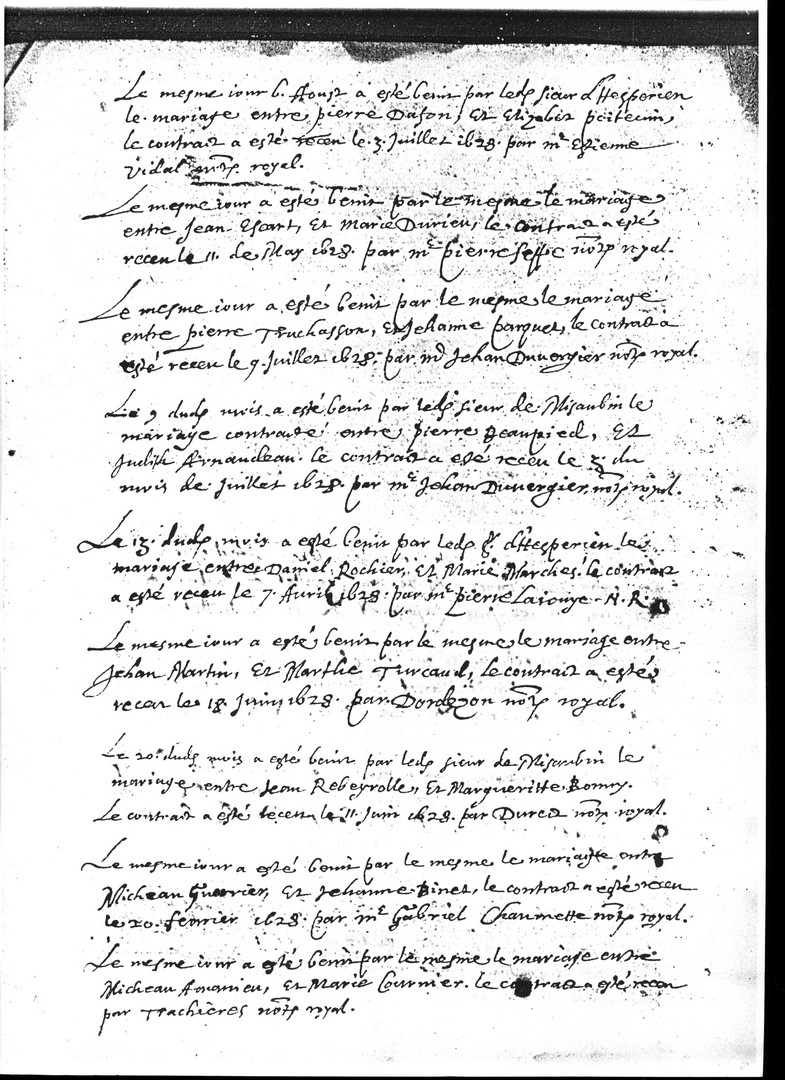 Le mesme iour 6. Aoust a esté benit par led sieur d'Hesperien
le mariage entre pierre Dason, Et Elizabet poitevin
le contrait a esté receu le 3. Juillet 1628. par me Estienne
Vidal notre royal.
Le mesme iour a esté benit par le mesme le mariage
entre Jean Escart, Et Marie Durieu, le contrait a esté
receu le 11. de May 1628. par me pierre Seffe notre royal.
Le mesme iour a esté benit par le mesme le mariage
entre pierre Truchasson, Et Jehanne parquet, le contrait a
esté receu le 9. Juillet 1628. par me Jehan Duvergier notre royal.
Le 9 dud mois a esté benit par led sieur de Misaubin le
mariage contraité entre pierre Beaupied, Et
Judith Arnaudeau. le contrait a esté receu le 3 du
mois de Juillet 1628. par me Jehan Duvergier notre royal.
Le 13. dud mois a esté benit par led sr. d'Hesperien le
mariage entre Daniel Rochier, Et Marie Marches. le contrait
a esté receu le 7. Avril 1628. par me pierre Lajouye. N. R.
Le mesme iour a esté benit par le mesme le mariage entre
Jehan Martin, Et Marthe Turcaud, le contrait a esté
receu le 18. Juin 1628. par Dordezon notre royal.
Le 20. dud mois a esté benit par led sieur de Misaubin le
mariage entre Jean Rebeyrolle, Et Margueritte Bomry.
Le contrait a esté receu le 11. Juin 1628. par Durect notre royal.
Le mesme iour a esté benit par le mesme le mariage entre
Micheau Guerrier, Et Jehanne Binet, le contrait a esté receu
le 20. fevrier 1628. par me Gabriel Chaumette notre royal.
Le mesme iour a esté benit par le mesme le mariage entre
Micheau Amanieu, Et Marie Cournier. le contrait a esté receu
par Trachieres notre royal.